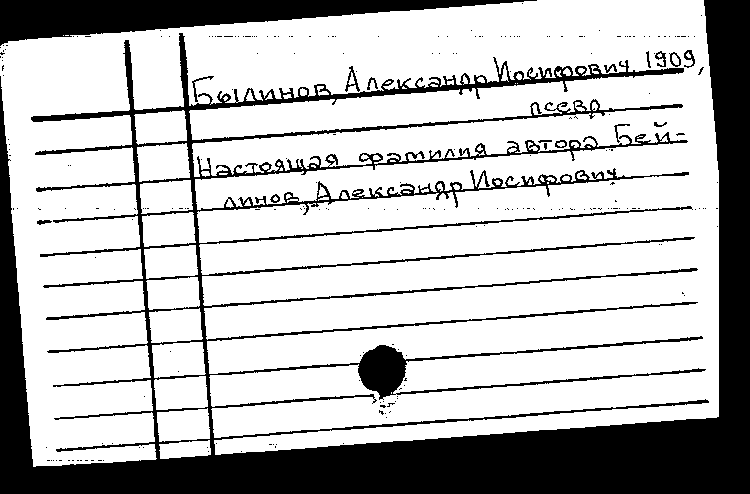 Былинов, Александр Иосифович, 1909,
псевд.
Настоящая фамилия автора Бей-
линов, Александр Иосифович.